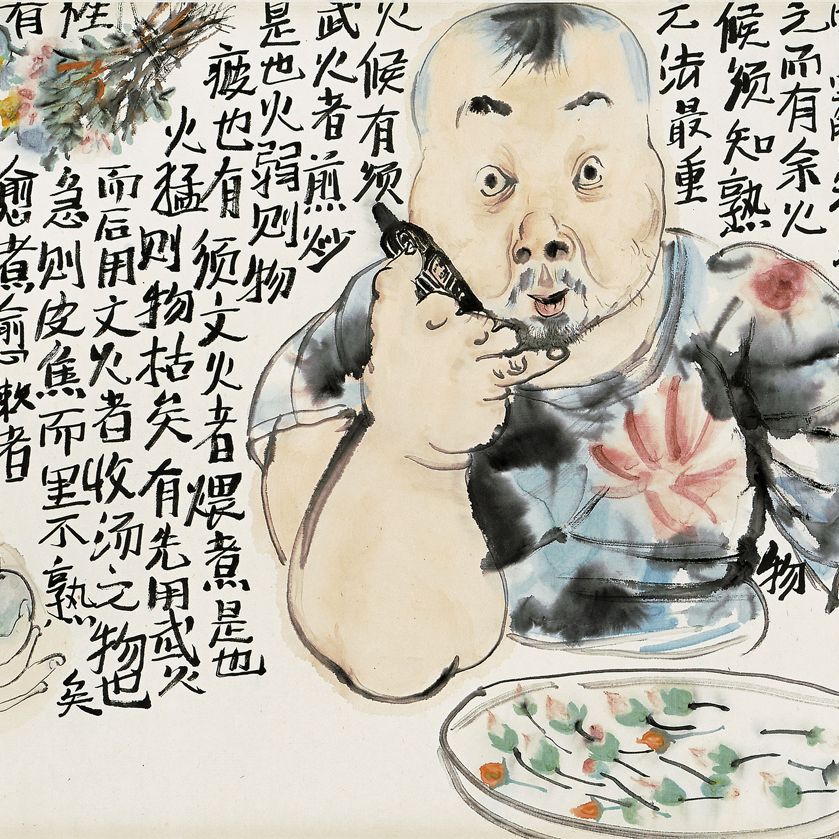 而有余火
候须知熟
物
之法最重
火候有须
武火者煎炒
是也火弱则物
疲也有须文火者煨煮是也
火猛则物枯矣有先用武火
而后用文火者收汤之物也
性急则皮焦而里不熟矣
有愈煮愈嫩者